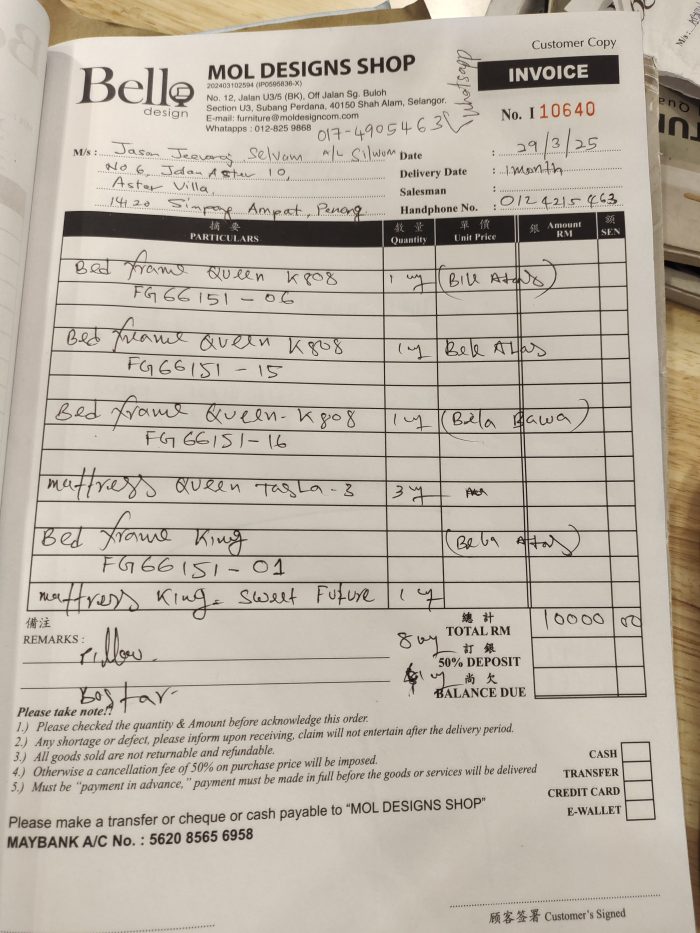 Customer Copy
Bello
design
MOL DESIGNS SHOP
202403102594 (IP0595836-X)
No. 12, Jalan U3/5 (BK), Off Jalan Sg. Buloh
Section U3, Subang Perdana, 40150 Shah Alam, Selangor.
E-mail: furniture@moldesigncom.com
Whatapps : 012-825 9868
017-4905463
Whatsapp
INVOICE
No. I 10640
M/s : Jason Jeevaraj Selvam A/L
No 6, Jalan Aster 10,
Aster Villa,
14120 Simpang Ampat, Penang
Date : 29/3/25
Delivery Date : 1 month
Salesman :
Handphone No. : 0124215463
摘要 數量 單價 銀 額
PARTICULARS Quantity Unit Price Amount RM SEN
Bed frame Queen K808 1 (Atas)
FG66151-06
Bed frame Queen K808 1 Atas
FG66151-15
Bed frame Queen-K808 1 (Bela Bawa)
FG66151-16
mattress Queen Tasla-3 3
Bed frame King (Bela Atas)
FG66151-01
mattress King - Sweet Future 1
備注
REMARKS :
pillow 8
1
總計
TOTAL RM 10000 00
訂銀
50% DEPOSIT
尚欠
BALANCE DUE
Please take note!!
1.) Please checked the quantity & Amount before acknowledge this order.
2.) Any shortage or defect, please inform upon receiving, claim will not entertain after the delivery period.
3.) All goods sold are not returnable and refundable.
4.) Otherwise a cancellation fee of 50% on purchase price will be imposed.
5.) Must be "payment in advance," payment must be made in full before the goods or services will be delivered
CASH
TRANSFER
CREDIT CARD
E-WALLET
Please make a transfer or cheque or cash payable to "MOL DESIGNS SHOP"
MAYBANK A/C No. : 5620 8565 6958
顧客簽署 Customer's Signed